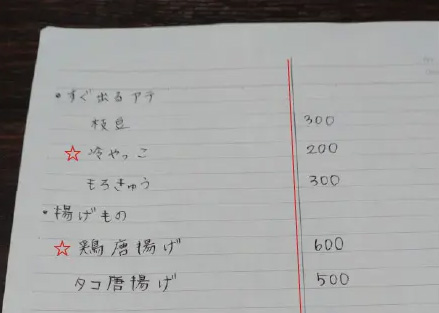 ・すぐ出るアテ
枝豆 300
☆冷やっこ 200
もろきゅう 300
・揚げもの
☆鶏唐揚げ 600
タコ唐揚げ 500